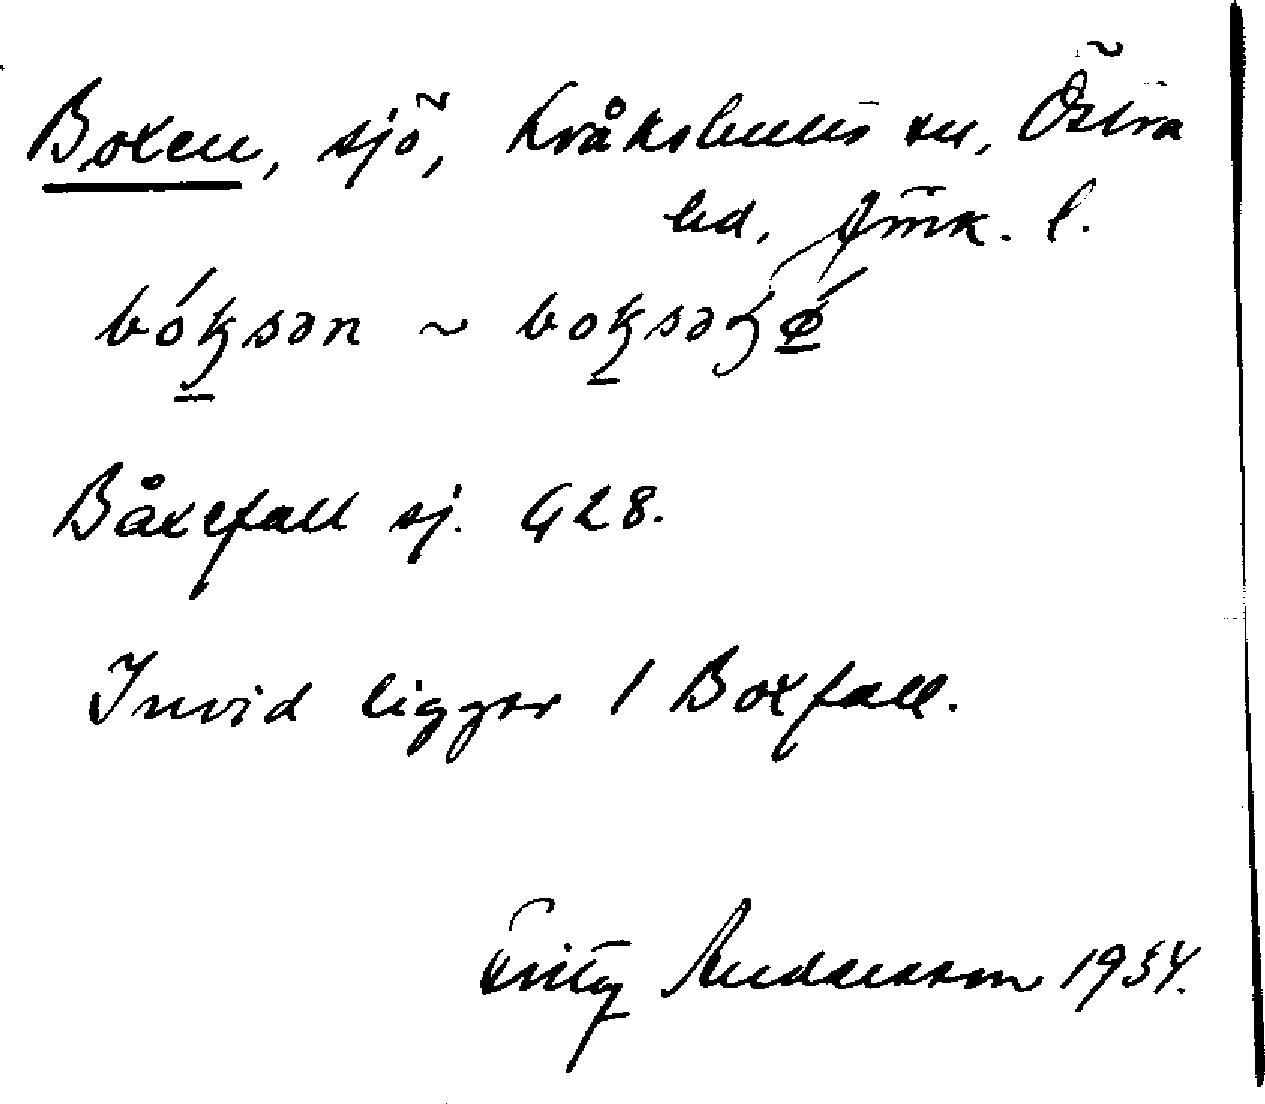 Boxen, sjö, Kråkshults sn, Östra
hd, Jmk. l.
bóksən ~ boksə
Båxefall sj. G28.
Invid ligger 1 Boxfall.
Fritz Andersson 1934.